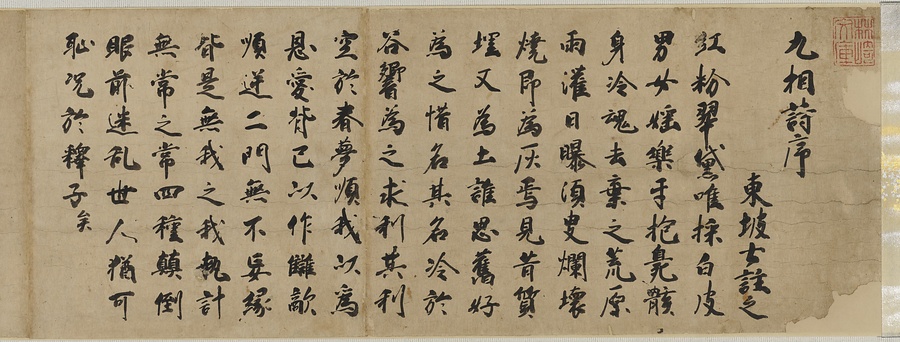 九相詩序
東坡士註之
紅粉翠黛唯採白皮
男女婬樂手抱臰骸
身冷魂去棄之荒原
雨灌日曝須臾爛壞
燒即為灰焉見昔質
埋又為土誰思舊好
為之惜名其名冷於
谷響為之求利其利
空於春夢順我以為
恩愛背己以作讎敵
順逆二門無不妄緣
皆是無我之我執計
無常之常四種顛倒
眼前迷乱世人猶可
恥况於釋子矣